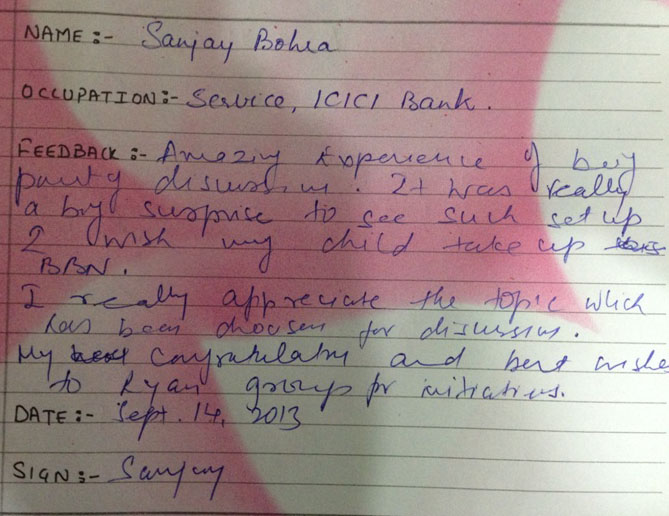 NAME:- Sanjay Bohra
OCCUPATION:- Service, ICICI Bank.
FEEDBACK:- Amazing Experience of being
party discussion. It was really
a big surprise to see such set up
I wish my child take up
BBN.
I really appreciate the topic which
has been choosen for discussion.
My congratulation and best wishes
to Ryan group for initiatives.
DATE:- Sept. 14, 2013
SIGN:- Sanjay